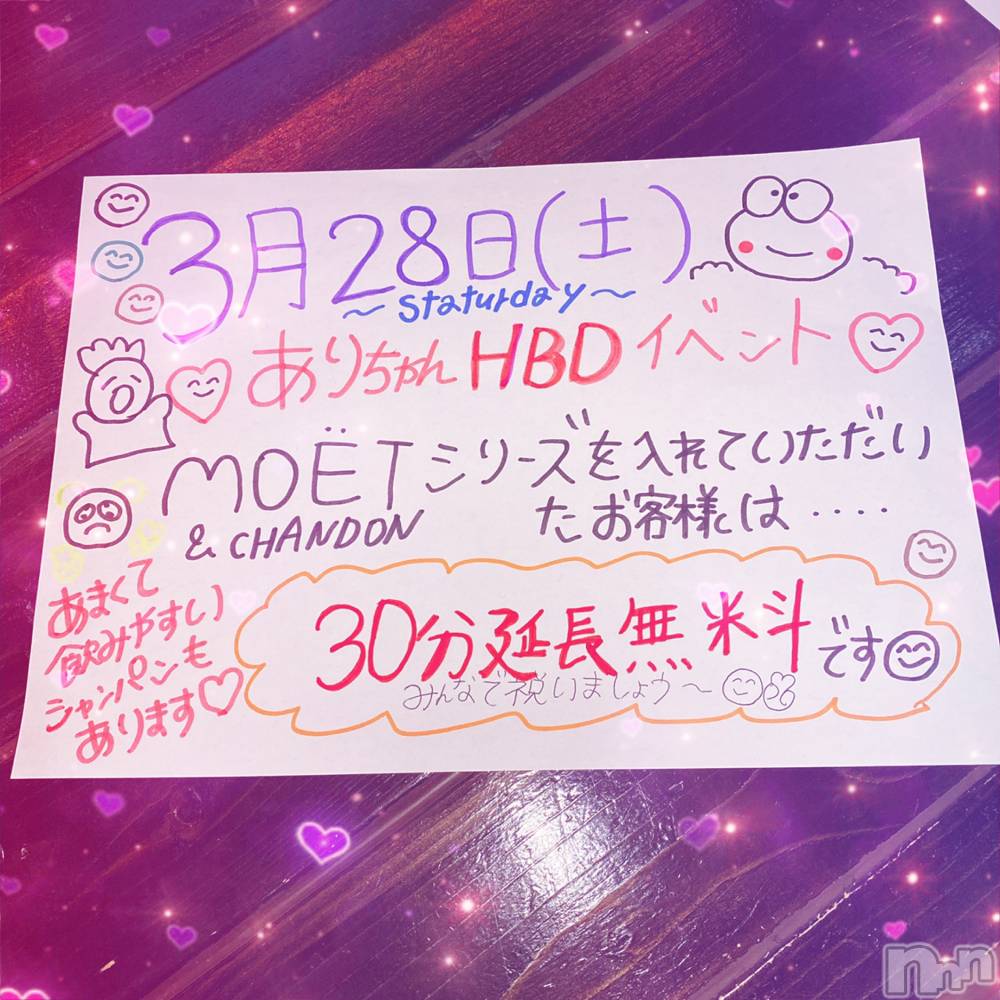 3月28日(土)
~ Staturday ~
ありちゃん HBD イベント
MOËT シリーズを入れていただい
& CHANDON たお客様は ‥‥
あまくて
飲みやすい
シャンパンも
あります♡
30分延長無料です
みんなで税いましょう~
nnn